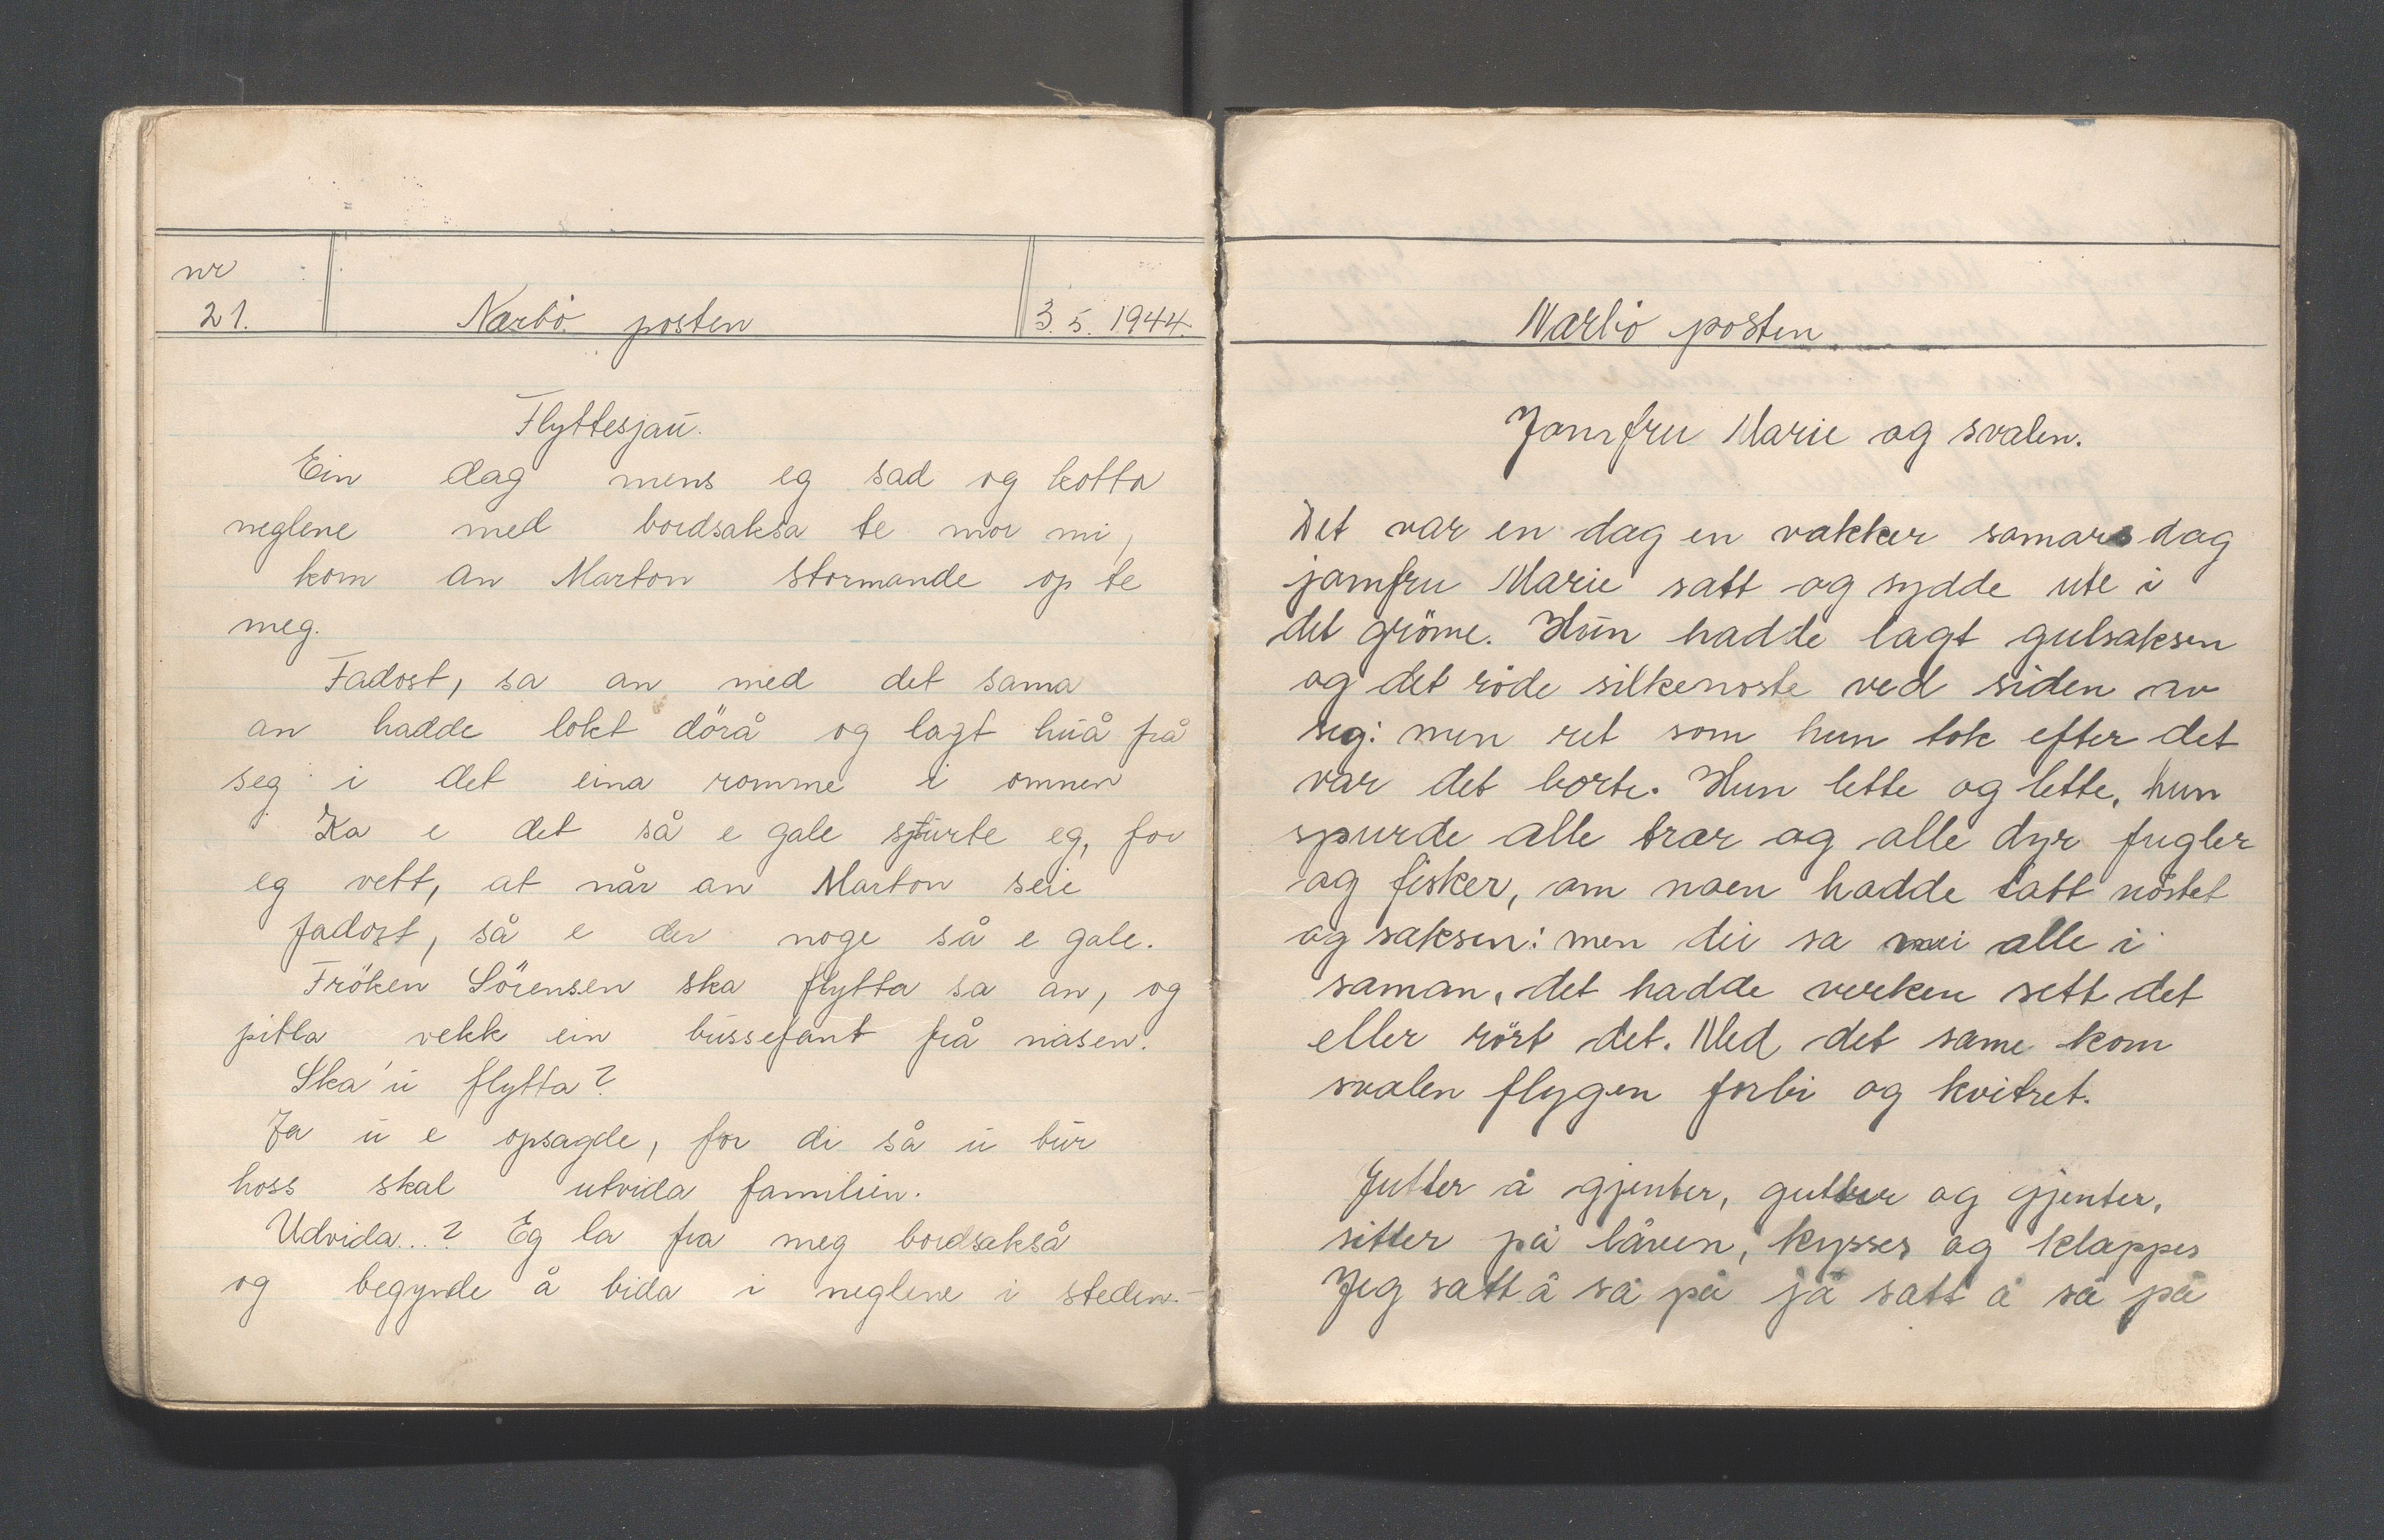 nr
21.
Nærbö posten
3.5.1944.
Flyttesjau.
Ein dag mens eg sad og kotta
neglene med bordsaksa te mor mi,
kom an Marton stormande op te
meg.
Fadost, sa an med det sama
an hadde lokt dörå og lagt huå frå
seg i det eina romme i omnen
Ka e det så e gale spurte eg, for
eg vett, at når an Marton seie
fadost, så e der noge så e gale.
Fröken Sörensen ska flytta sa an, og
pitla vekk ein bussefant frå nasen.
Ska'u flytta?
Ja u e opsagde, for di så u bur
hoss skal utvida familien.
Udvida...? Eg la fra meg bordsakså
og begynde å bida i neglene i steden.-
Nærbö posten
Jomfru Marie og svalen.
Det var en dag en vakker somarsdag
jomfru Marie satt og sydde ute i
det gröme. Hun hadde lagt gulsaksen
og det röde silkenoste ved siden av
seg: men ret som hun tok efter det
var det borte. Hun lette og lette, hun
spurde alle trær og alle dyr fugler
og fisker, om noen hadde tatt nöstet
og saksen: men dei sa nei alle i
saman, det hadde verken sett det
eller rört det. Med det same kom
svalen flygen forbi og kvitret.
Jutter å gjenter, gutter og gjenter,
sitter på låven, kysses og klappes
Jeg satt å så på jä satt å så på